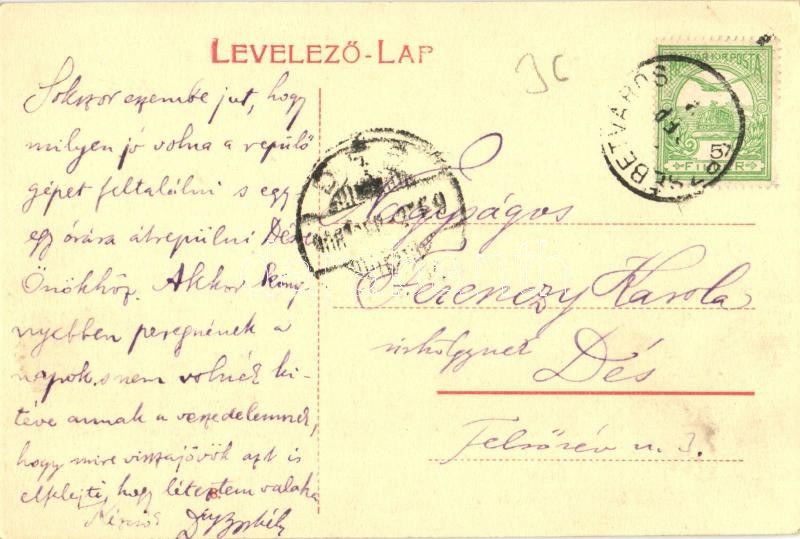 LEVELEZŐ-LAP
Sokszor eszembe jut, hogy
milyen jó volna a repülő
gépet feltalálni s egy
egy órára átrepülni Désre
Önökhöz. Akkor köny-
nyebben peregnének a
napok s nem volnék ki-
téve annak a veszedelemnek,
hogy mire visszajövök azt is
elfelejti, hogy léteztem valaha
Nagyságos
Ferenczy Karola
úrhölgynek
Dés
Felsőrév u. 3.
MAGYAR KIR. POSTA
5
FILLÉR
ERZSÉBETVÁROS
36